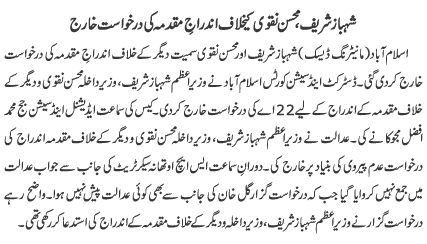 شہباز شریف، محسن نقوی کیخلاف اندراج مقدمہ کی درخواست خارج
اسلام آباد (مانیٹرنگ ڈیسک) شہباز شریف اور محسن نقوی سمیت دیگر کے خلاف اندراج مقدمہ کی درخواست
خارج کردی گئی۔ ڈسٹرکٹ اینڈ سیشن کورٹس اسلام آباد نے وزیراعظم شہباز شریف، وزیر داخلہ محسن نقوی و دیگر کے
خلاف مقدمہ کے اندراج کے لیے 22 اے کی درخواست خارج کردی۔ کیس کی سماعت ایڈیشنل اینڈ سیشن جج محمد
افضل مجوکا نے کی۔ عدالت نے وزیراعظم شہباز شریف، وزیر داخلہ محسن نقوی و دیگر کے خلاف مقدمہ اندراج کی
درخواست عدم پیروی کی بنیاد پر خارج کی۔ دوران سماعت ایس ایچ او تھانہ سیکرٹریٹ کی جانب سے جواب عدالت
میں جمع نہیں کروایا گیا جب کہ درخواست گزار گل خان کی جانب سے بھی کوئی عدالت پیش نہیں ہوا۔ واضح رہے
درخواست گزار نے وزیراعظم شہباز شریف، وزیر داخلہ و دیگر کے خلاف مقدمہ کے اندراج کی استدعا کر رکھی تھی۔